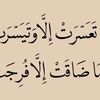 تَعَسَّرَتْ إِلَّا وَتَيَسَّرَت
مَا ضَاقَتْ إِلَّا فُرِجَت